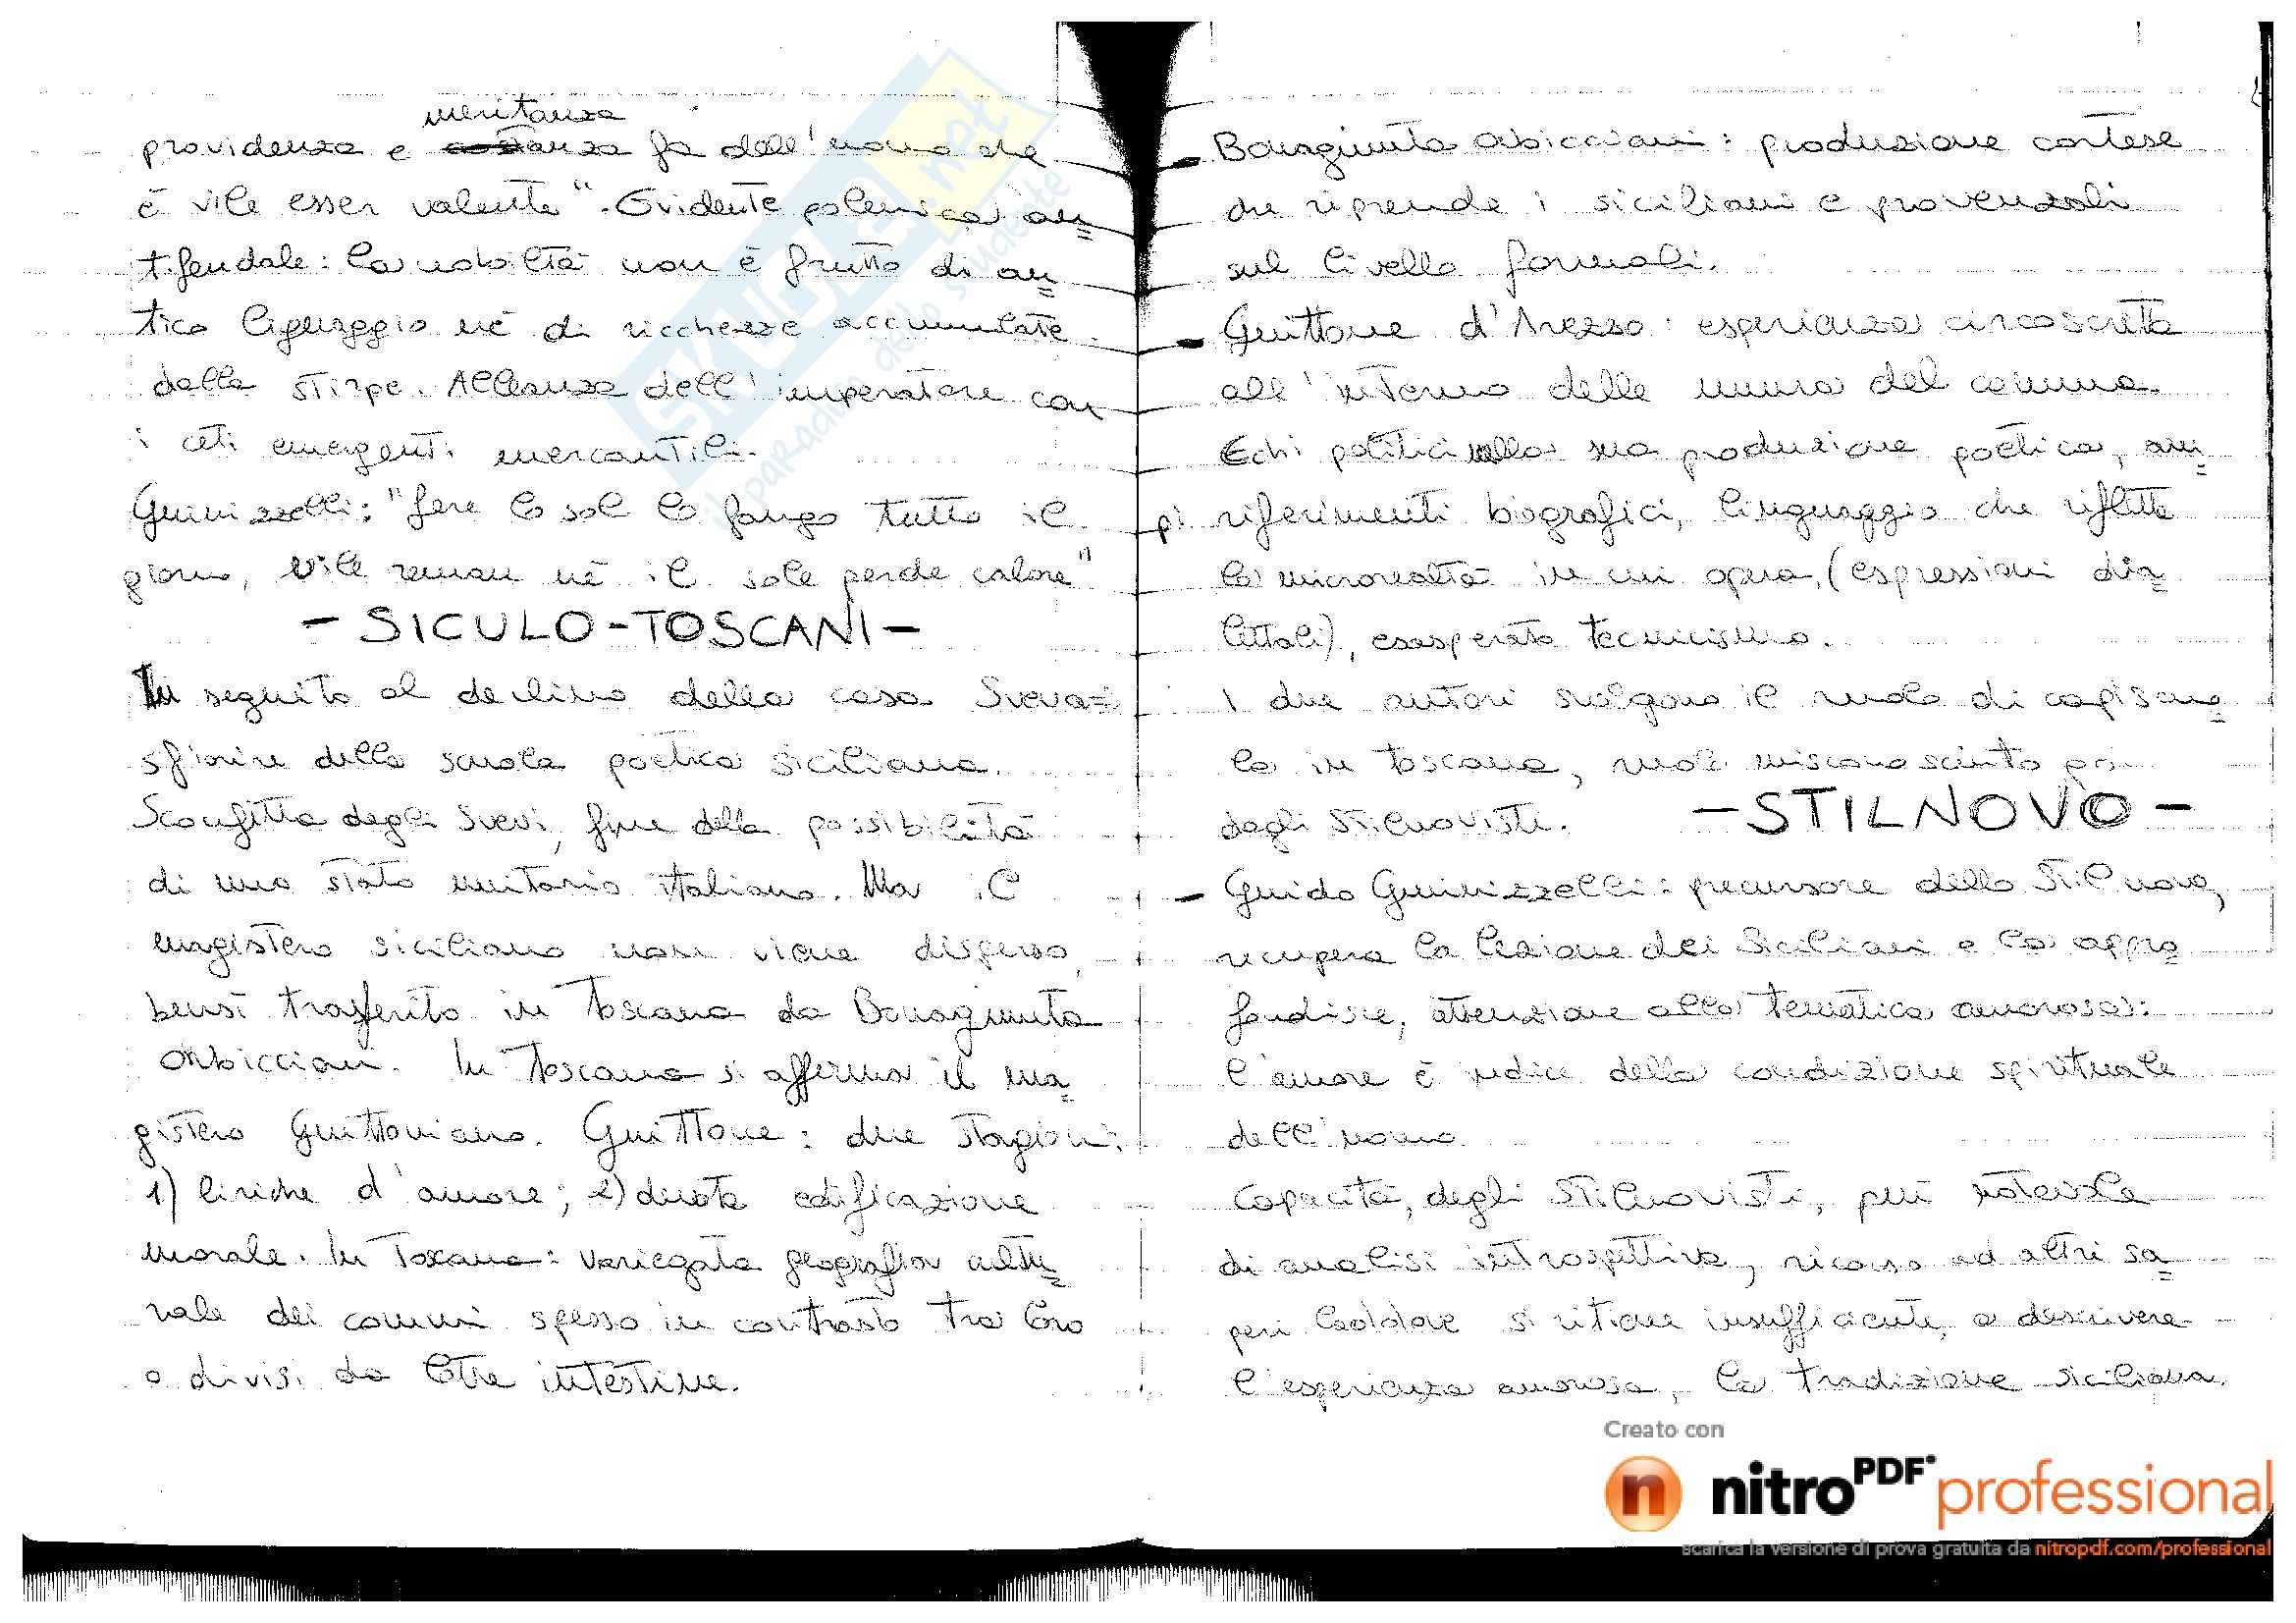 meritanza
providenza e fa dell'uomo che
è vile esser valente". Evidente polemica an=
tifeudale: la nobiltà non è frutto di an=
tico lignaggio né di ricchezze accumulate
dalla stirpe. Alleanza dell'imperatore con
i ceti emergenti mercantili.
Guinizzelli: "fere lo sol lo fango tutto il
giorno, vile reman né il sole perde calore"
- SICULO-TOSCANI -
In seguito al declino della casa Sveva=
sfiorire della scuola poetica siciliana.
Sconfitta degli Svevi, fine della possibilità
di uno stato unitario italiano. Ma il
magistero siciliano non viene disperso,
bensì trasferito in Toscana da Bonagiunta
Orbicciani. In Toscana si afferma il ma=
gistero Guittoniano. Guittone: due stagioni:
1) liriche d'amore; 2) dirotta edificazione
morale. In Toscana: variegata geografia cultu=
rale dei comuni spesso in contrasto tra loro
o divisi da lotte intestine.
- Bonagiunta Orbicciani: produzione cortese
che riprende i siciliani e provenzali
sul livello formali.
- Guittone d'Arezzo: esperienza circoscritta
all'interno delle mura del comune.
Echi politici nella sua produzione poetica, am=
pi riferimenti biografici, linguaggio che riflette
la microrealtà in cui opera, (espressioni dia=
lettali), esasperato tecnicismo.
I due autori svolgono il ruolo di capiscuo=
la in Toscana, ruolo misconosciuto poi
dagli Stilnovisti.
- STILNOVO -
- Guido Guinizzelli: precursore dello Stilnovo,
recupera la lezione dei Siciliani e la appro=
fondisce, attenzione alla tematica amorosa:
l'amore è indice della condizione spirituale
dell'uomo.
Capacità, degli Stilnovisti, più notevole
di analisi introspettiva, ricorso ad altri sa=
peri laddove si ritiene insufficiente, a descrivere
l'esperienza amorosa, la tradizione siciliana.
SKUOLA.net
il paradiso dello studente
Creato con
nitroPDF professional
scarica la versione di prova gratuita da nitropdf.com/professional